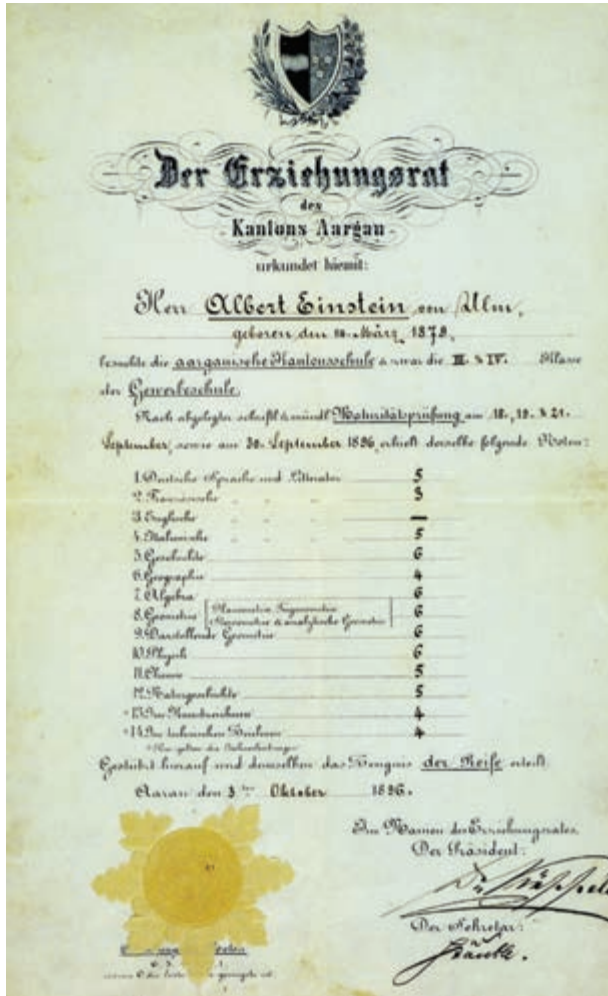 Der Erziehungsrat
des
Kantons Aargau
urkundet hiemit:
Herr Albert Einstein von Ulm,
geboren den 14. März 1879,
besuchte die aargauische Kantonsschule & zwar die III. & IV. Klasse
der Gewerbeschule.
Nach abgelegter schriftl. & mündl. Maturitätsprüfung am 18., 19. & 21.
September, sowie am 30. September 1896, erhielt derselbe folgende Noten:
1. Deutsche Sprache und Litteratur 5
2. Französische " " " 3
3. Englische " " " —
4. Italienische " " " 5
5. Geschichte 6
6. Geographie 4
7. Algebra 6
8. Geometrie Planimetrie, Trigonometrie 6
Stereometrie & analytische Geometrie
9. Darstellende Geometrie 6
10. Physik 6
11. Chemie 5
12. Naturgeschichte 5
*13. Im Kunstzeichnen 4
*14. Im technischen Zeichnen 4
*Hier gelten die Jahresleistungen.
Gestützt hierauf wird demselben das Zeugnis der Reife erteilt.
Aarau den 3ten Oktober 1896.
Im Namen des Erziehungsrates,
Der Präsident:
Der Sekretär: